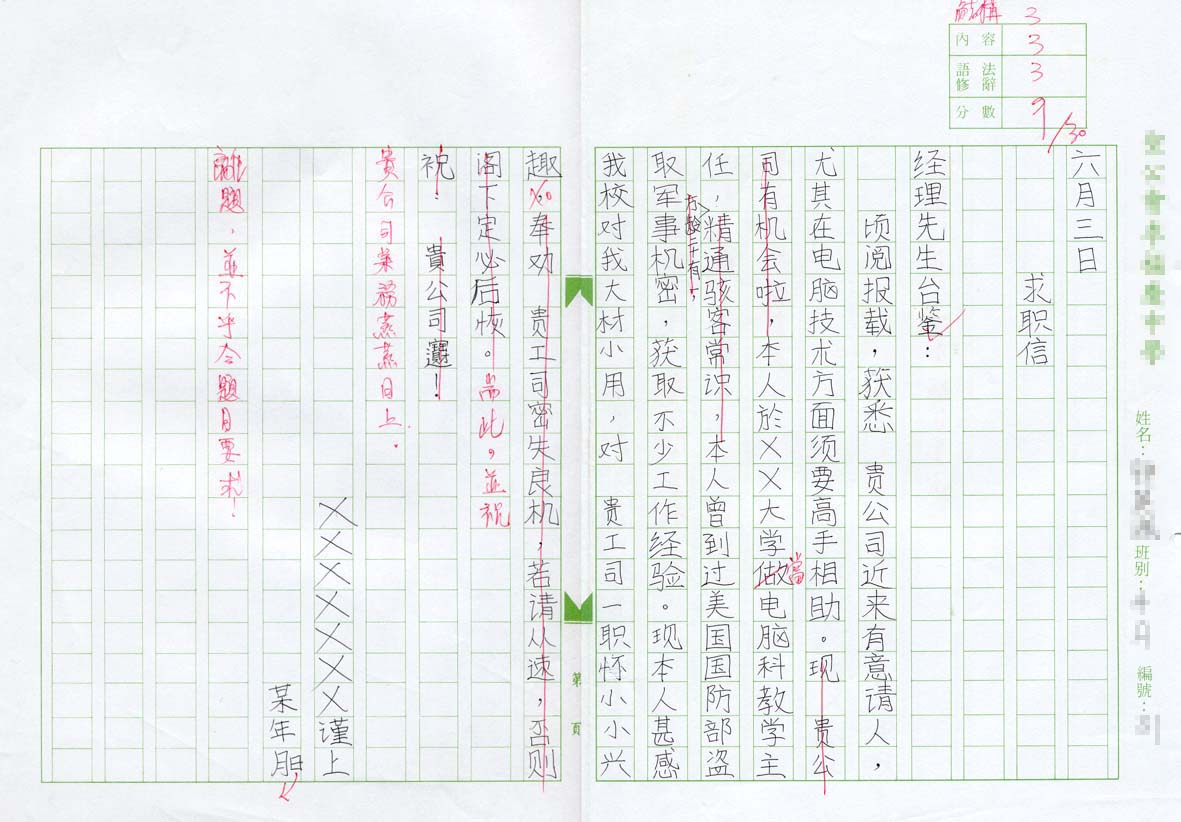 結構 3
內容 3
語法修辭 3
分數 9/30
姓名：
班別：
編號：
六月三日
求职信
经理先生台鉴：
顷阅报载，获悉 贵公司近来有意请人，
尤其在电脑技术方面须要高手相助。现 贵公
司有机会啦，本人於XX大学做电脑科教学主
當
任，精通骇客常识，本人曾到过美国国防部盗
取军事机密，获取不少工作经验。现本人甚感
我校对我大材小用，对 贵工司一职怀小小兴
趣。奉劝 贵工司密失良机，若请从速，否则
阁下定必后恢。耑此。並祝
祝： 貴公司
貴公司業務蒸蒸日上.
XXXXXXX谨上
某年
離題，並不乎合題目要求！
第 頁